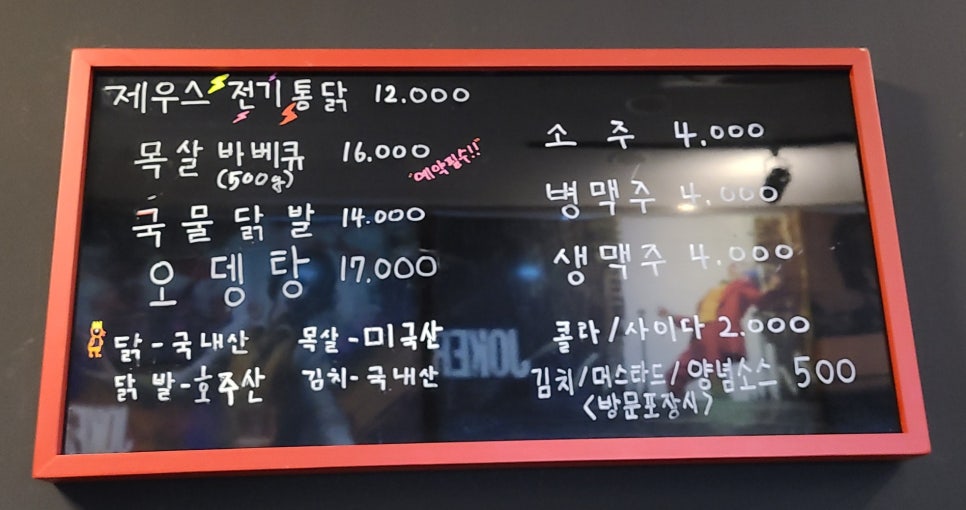 제우스 전기통닭 12.000
목살 바베큐 16.000
(500g)
예약필수!!
국물닭발 14.000
오뎅탕 17.000
닭-국내산 목살-미국산
닭발-호주산 김치-국내산
소주 4.000
병맥주 4.000
생맥주 4.000
콜라/사이다 2.000
김치/머스타드/양념소스 500
<방문포장시>
JOKER